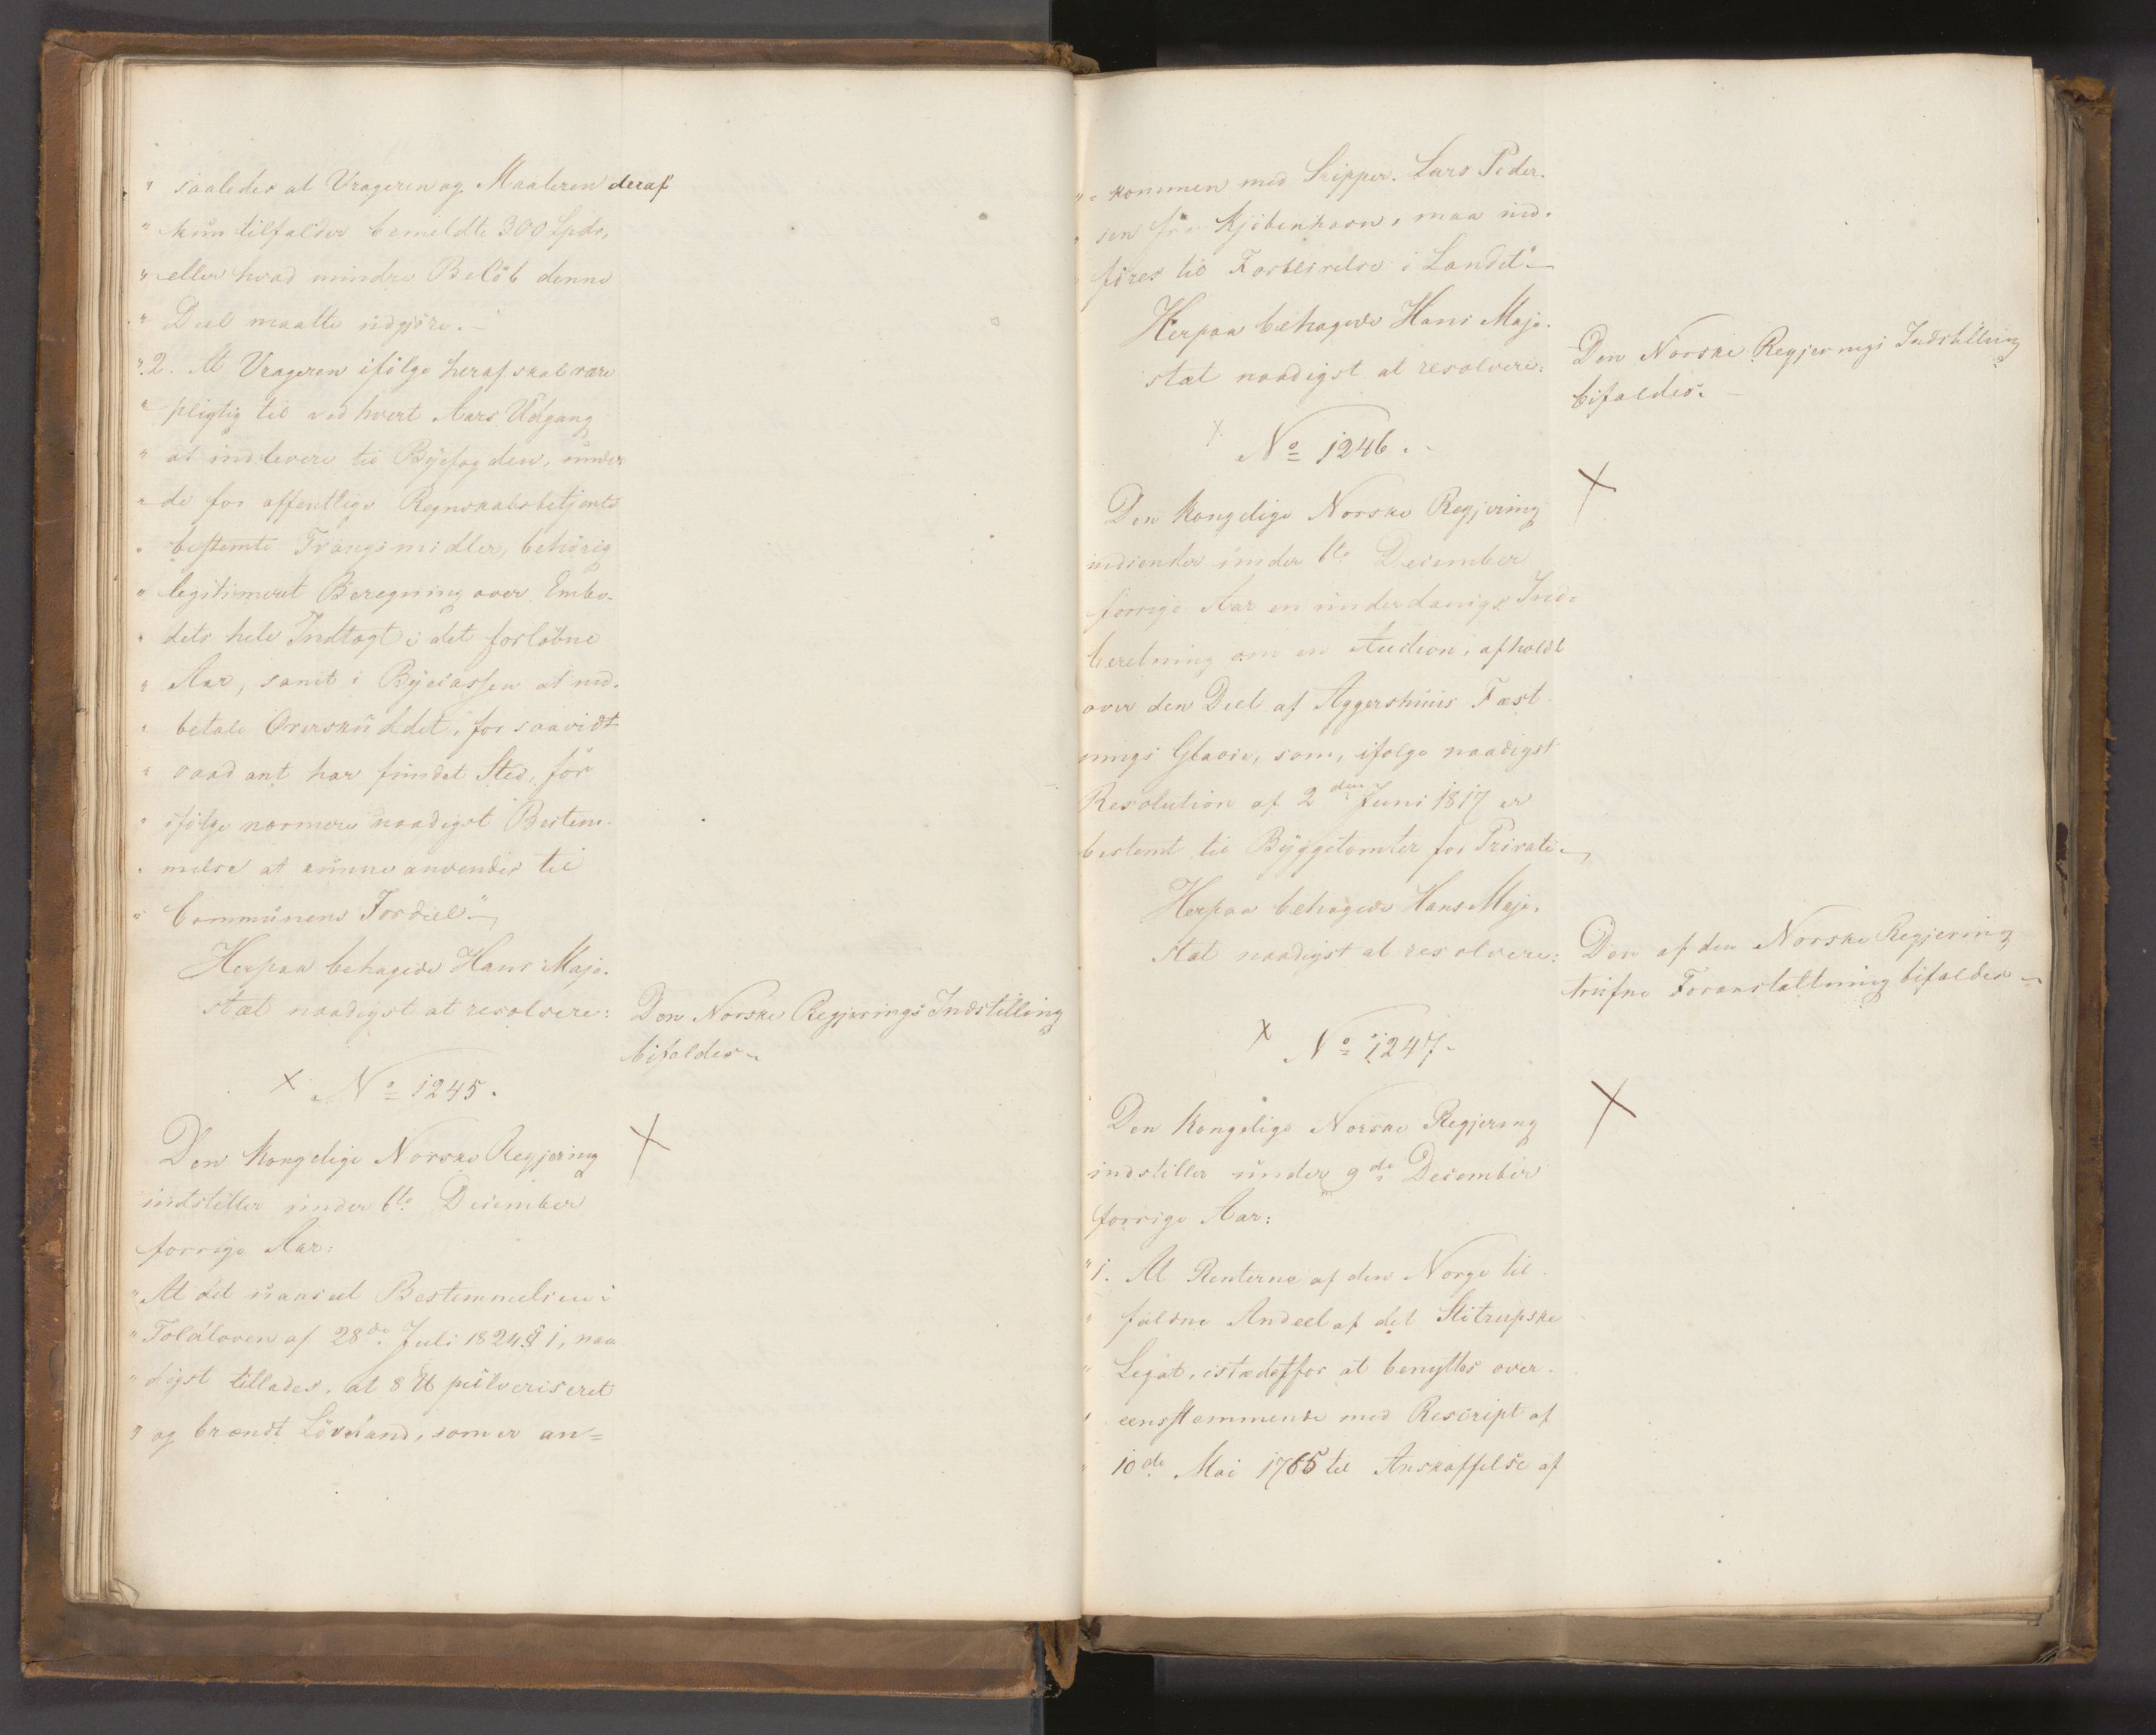 " saaledes at Vrageren og Maaleren deraf
" kun tilfalder bemeldte 300 Spdr,
" eller hvad mindre Beløb denne
" Deel maatte udgjøre. -
" 2. At Vrageren ifølge heraf skal være
" pligtig til ved hvert Aars Udgang
" at indlevere til Byefogden, under
" de for offentlige Regnskabsbetjente
" bestemte Tvangsmidler, behørig
" legitimeret Beregning over Embe-
" dets hele Indtægt i det forløbne
" Aar, samt i Byecassen at ind-
" betale Overskuddet, for saavidt
" saadant har fundet Sted, for
" ifølge nærmere naadigst Bestem-
" melse at kunne anvendes til
" Communens Fordeel" -
Herpaa behagede Hans Maje-
stæt naadigst at resolvere:
Den Norske Regjerings Indstilling
bifaldes -
× No 1245.
×
Den Kongelige Norske Regjering
indstiller under 6te December
forrige Aar:
" At det uanseet Bestemmelsen i
" Toldloven af 28de Juli 1824 § 1, naa
" digst tillades, at 8 ℔ pulveriseret
" og brændt Løvetand, som er an=
" = kommen med Skipper Lars Peder-
" sen fra Kjøbenhavn, maa ind-
" føres til Fortoldelse i Landet" -
Herpaa behagede Hans Maje-
stæt naadigst at resolvere:
Den Norske Regjerings Indstilling
bifaldes. -
× No 1246. -
×
Den Kongelige Norske Regjering
indsender under 6te December
forrige Aar en underdanigst Ind-
beretning om en Auction, afholdt
over den Deel af Aggershuus Fæst
nings Glacie, som, ifølge naadigst
Resolution af 2den Juni 1817 er
bestemt til Byggetomter for Private -
Herpaa behagede Hans Maje-
stæt naadigst at resolvere:
Den af den Norske Regjering
trufne Foranstaltning bifaldes -
× No 1247 -
×
Den Kongelige Norske Regjering
indstiller under 9de December
forrige Aar:
" 1. At Renterne af den Norge til-
" faldne Andeel af det Stitrupske
" Legat, istædetfor at benyttes over-
" eensstemmende med Rescript af
" 10de Mai 1765 til Anskaffelse af